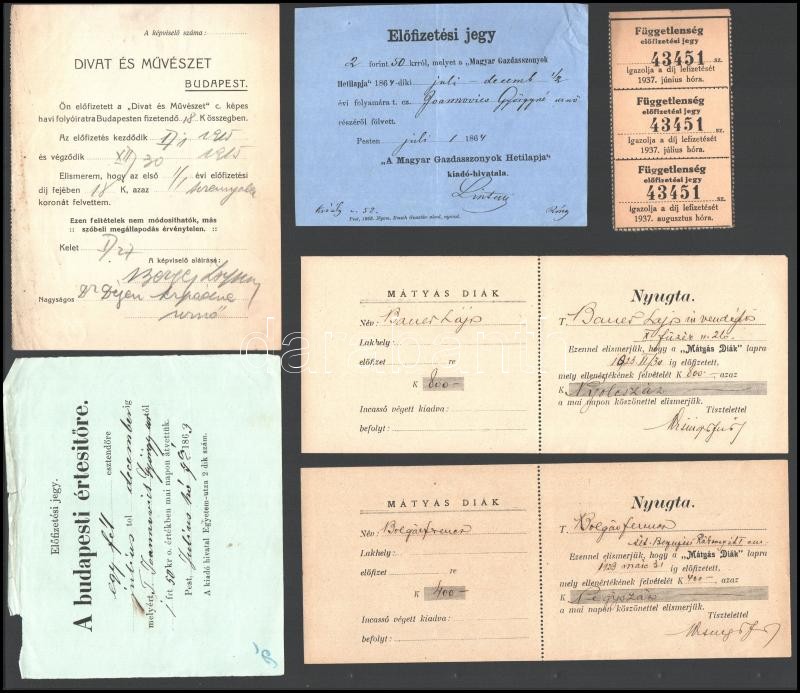 A képviselő száma:
DIVAT ÉS MŰVÉSZET
BUDAPEST.
Ön előfizetett a „Divat és Művészet" c. képes
havi folyóiratra Budapesten fizetendő 18 K összegben.
Az előfizetés kezdődik 1915
és végződik XII/30 1915
Elismerem, hogy az első 1/1 évi előfizetési
díj fejében 18 K, azaz
koronát felvettem.
Ezen feltételek nem módosíthatók, más
:: szóbeli megállapodás érvénytelen. ::
Kelet
A képviselő aláírása:
Nagyságos
Előfizetési jegy
2 forint 50 krról, melyet a „Magyar Gazdasszonyok
Hetilapja" 1864-diki juli - decemb 1/2
évi folyamára t. cz. Joannovics Györgyné urnő
részéről fölvett.
Pesten juli 1 1864
„A Magyar Gazdasszonyok Hetilapja"
kiadó-hivatala.
Függetlenség
előfizetési jegy
43451 sz.
igazolja a díj lefizetését
1937. június hóra.
Függetlenség
előfizetési jegy
43451 sz.
igazolja a díj lefizetését
1937. július hóra.
Függetlenség
előfizetési jegy
43451 sz.
igazolja a díj lefizetését
1937. augusztus hóra.
MÁTYÁS DIÁK
Név: Bauer Lajos
Lakhely:
előfizet re
K 800-
Incasso végett kiadva:
befolyt:
Nyugta.
T. Bauer Lajos
Ezennel elismerjük, hogy a „Mátyás Diák" lapra
ig előfizetett,
mely ellenértékének felvételét K 800- azaz
K Nyolcszáz
a mai napon köszönettel elismerjük.
Tisztelettel
Előfizetési jegy.
A budapesti értesítőre.
egy fél esztendőre
julius tol decemberig
melyért T. Joannovics György úrtól
1 frt 50 kr o. értékben mai napon átvettük.
Pest, Julius hó 9n 1863
A kiadó hivatal Egyetem-utza 2 dik szám.
MÁTYÁS DIÁK
Név: Bolgár Ferenc
Lakhely:
előfizet re
K 400-
Incasso végett kiadva:
befolyt:
Nyugta.
T. Bolgár Ferenc
Ezennel elismerjük, hogy a „Mátyás Diák" lapra
1923 márc 31 ig előfizetett,
mely ellenértékének felvételét K 400- azaz
K Négyszáz
a mai napon köszönettel elismerjük.
Tisztelettel